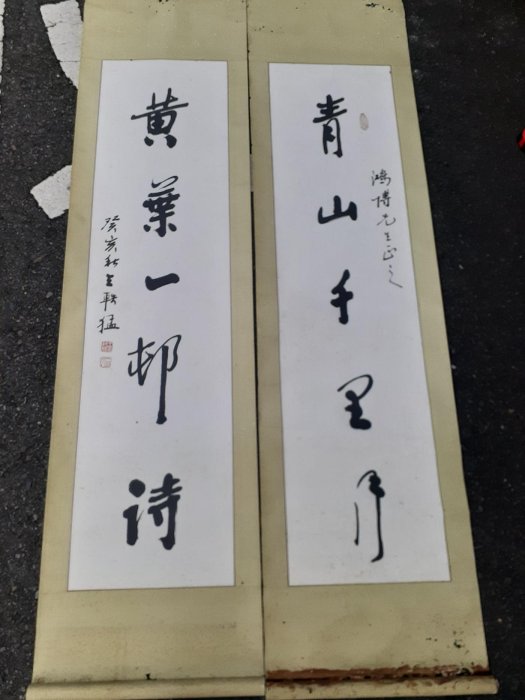 鴻博先生正之
青山千里
黄葉一邨詩
癸亥秋王猛